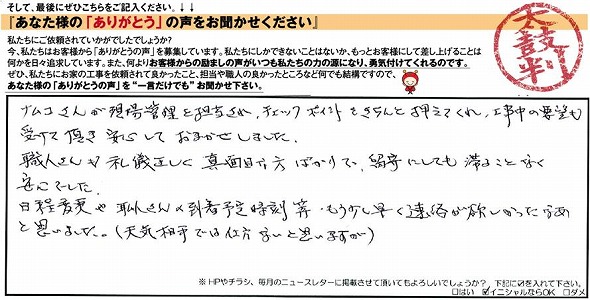 そして、最後にぜひこちらをご記入ください。↓↓↓
『あなた様の「ありがとう」の声をお聞かせください』
私たちにご依頼されていかがでしたでしょうか?
今、私たちはお客様から「ありがとうの声」を募集しています。私たちにしかできないことはないか、もっとお客様にして差し上げることは
何かを日々追求しています。また、何よりお客様からの励ましの声がいつも私たちの力の源になり、勇気付けてくれるのです。
ぜひ、私たちにお家の工事を依頼されて良かったこと、担当や職人の良かったところなど何でも結構ですので、
あなた様の「ありがとうの声」を"一言だけでも"お聞かせ下さい。
太鼓判
ナムコさんが現場管理を担当され、チェックポイントをきちんと押えてくれ、工事中の要望も
受けて頂き安心しておまかせしました。
職人さんも礼儀正しく真面目な方ばかりで、留守にしても滞ることなく
安心でした。
日程変更や職人さんの到着予定時刻等、もう少し早く連絡が欲しかったかなあ
と思いました。(天気相手では仕方ないと思いますが)
※HPやチラシ、毎月のニュースレターに掲載させて頂いてもよろしいでしょうか?下記に☑を入れて下さい。
□はい ☑イニシャルならOK □ダメ